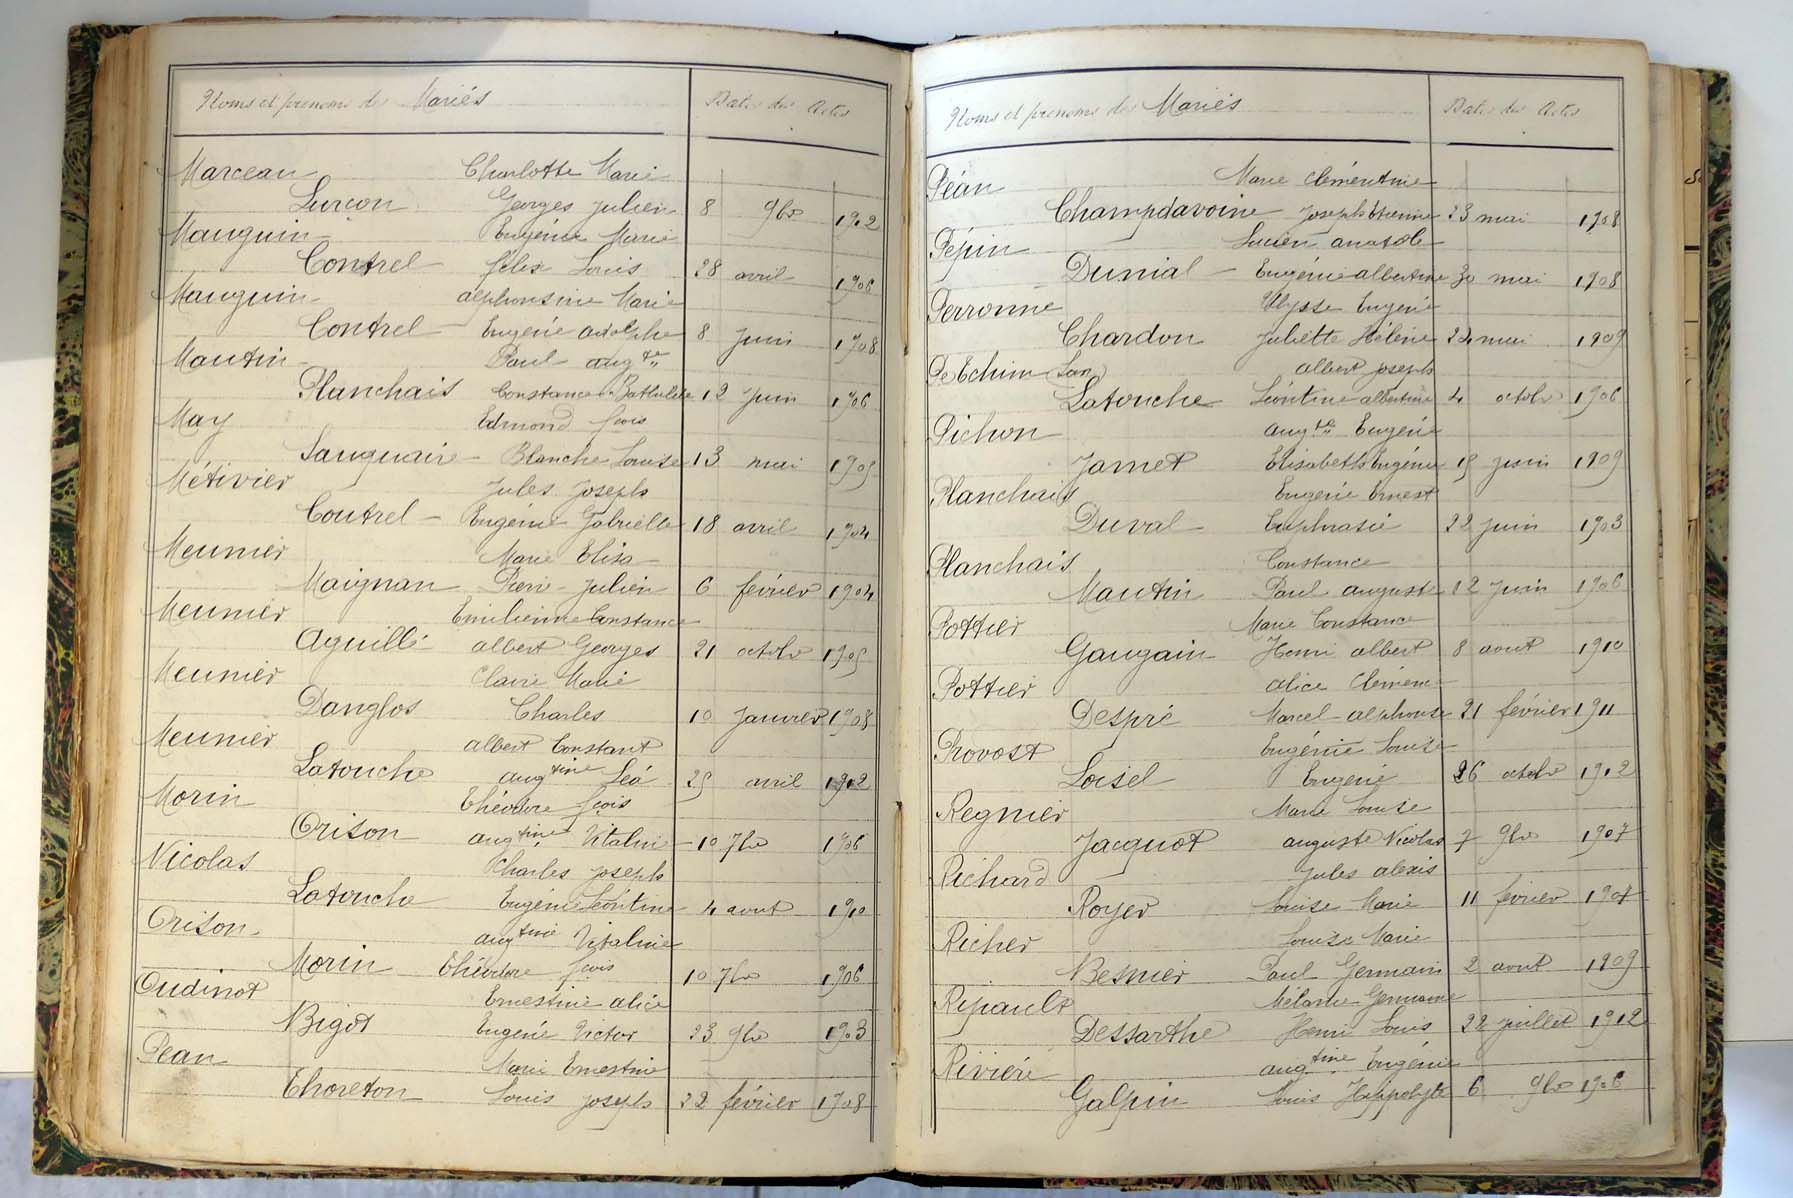 Noms et prénoms des Mariés Dates des Actes
Marceau Charlotte Marie
Lurçon Georges Julien 8 9bre 1902
Mauguin Eugénie Marie
Contrel félix Louis 28 avril 1906
Mauguin alphonsine Marie
Contrel Eugène adolphe 8 juin 1908
Mautin Paul augte
Planchais Constance Bathilde 12 juin 1906
May Edmond fçois
Sauguaire Blanche Louise 13 mai 1905
Métivier Jules Joseph
Coutrel Eugénie Gabrielle 18 avril 1904
Meunier Marie Elisa
Maignan Pierre Julien 6 février 1904
Meunier Emilienne Constance
Aguillé albert Georges 21 octobre 1905
Meunier Claire Marie
Danglos Charles 10 janvier 1908
Meunier albert Constant
Latouche augtine Léa 25 avril 1912
Morin Théodore fçois
Orison augtine Vitaline 10 7bre 1906
Nicolas Charles Joseph
Latouche Eugénie Léontine 4 aout 1910
Orison augtine Vitaline
Morin Théodore fçois 10 7bre 1906
Oudinot Ernestine alice
Bigot Eugène Victor 23 9bre 1903
Pean Marie Ernestine
Thoreton Louis Joseph 22 février 1908
Noms et prénoms des Mariés Dates des Actes
Péan Marie Clémentine
Champdavoine Joseph Etienne 23 mai 1908
Pépin Lucien anatole
Dunial Eugénie albertine 30 mai 1908
Perronne Ulysse Eugène
Chardon Juliette Hélène 24 mai 1909
De Echim San albert joseph
Latouche Léontine albertine 4 octobre 1906
Pichon augte Eugène
Jamet Elisabeth Eugénie 15 juin 1909
Planchais Eugène Ernest
Duval Euphrasie 22 juin 1903
Planchais Constance
Mautin Paul auguste 12 juin 1906
Pottier Marie Constance
Gaugain Henri albert 8 aout 1910
Pottier alice Clémence
Despré Marcel alphonse 21 février 1911
Provost Eugénie Louise
Loisel Eugène 26 octobre 1912
Regnier Marie Louise
Jacquot auguste Nicolas 7 9bre 1907
Richard Jules alexis
Royer Louise Marie 11 février 1907
Richer Louise Marie
Besnier Paul Germain 2 aout 1909
Ripault Mélanie Germaine
Dessarthe Henri Louis 22 juillet 1912
Rivière augtine Eugénie
Galpin Louis Hippolyte 6 9bre 1906